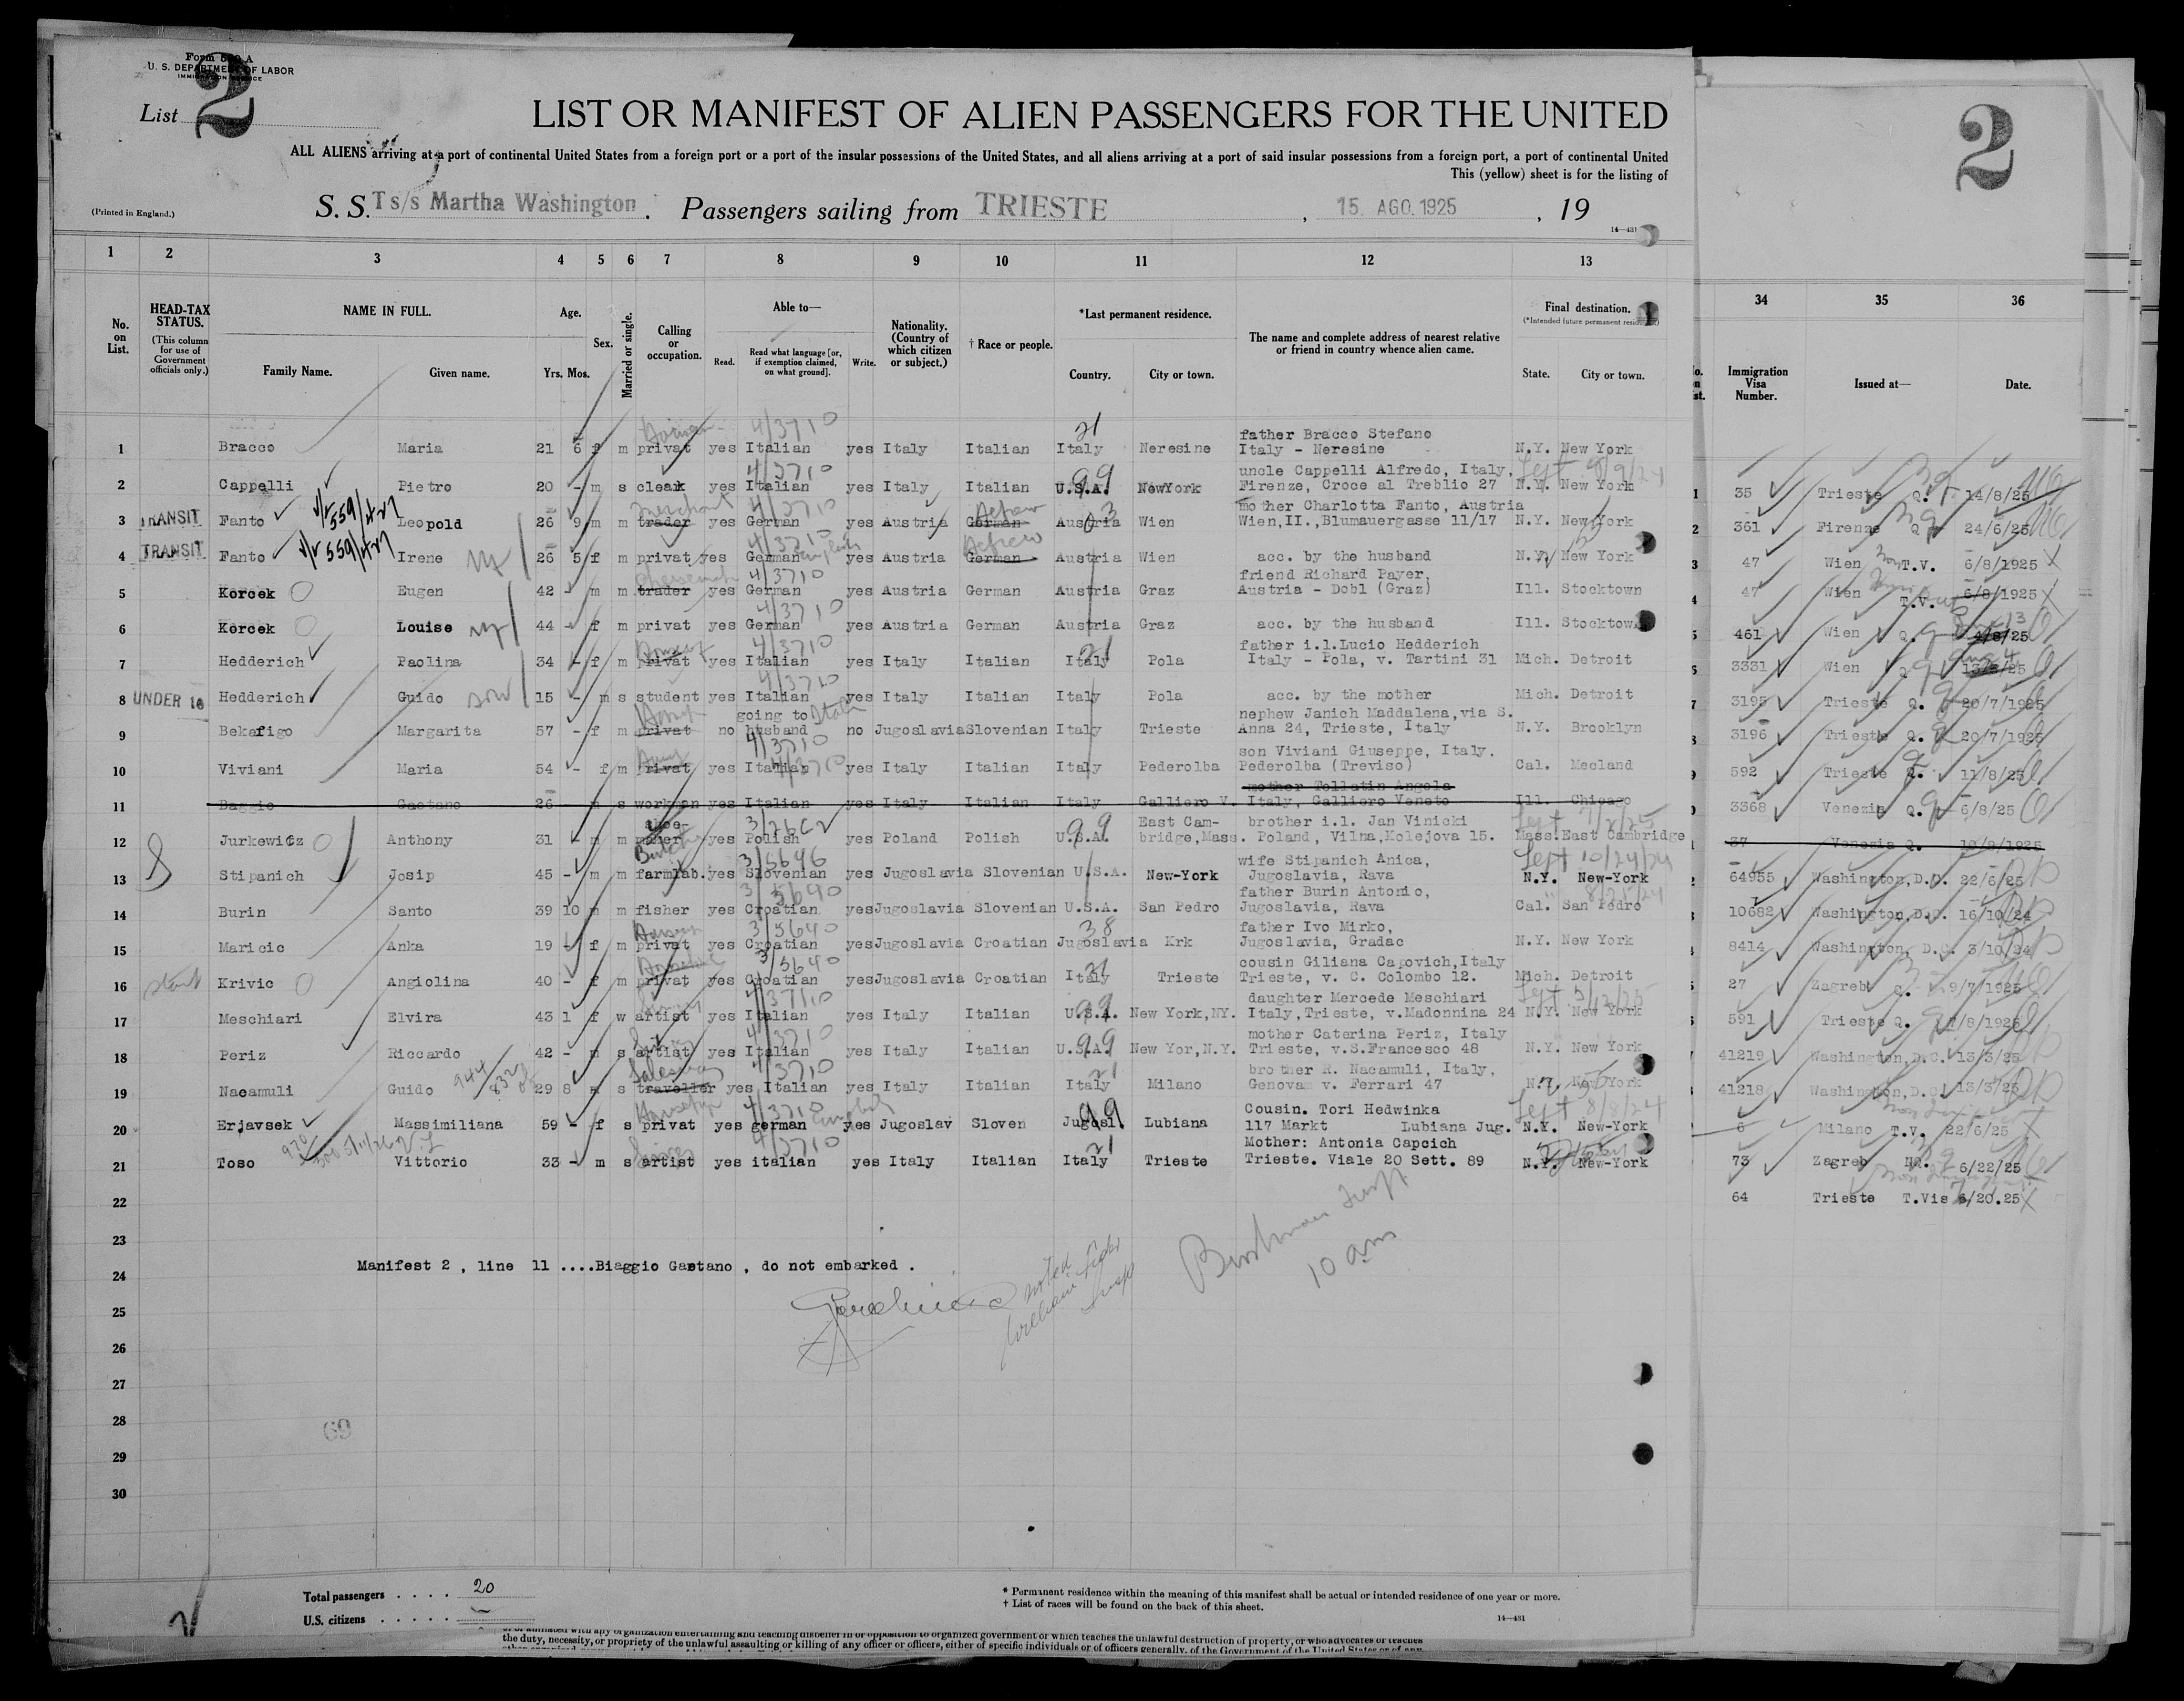 Form 500 A
U. S. DEPARTMENT OF LABOR
IMMIGRATION SERVICE
List 2
LIST OR MANIFEST OF ALIEN PASSENGERS FOR THE UNITED
ALL ALIENS arriving at a port of continental United States from a foreign port or a port of the insular possessions of the United States, and all aliens arriving at a port of said insular possessions from a foreign port, a port of continental United
This (yellow) sheet is for the listing of
(Printed in England.)
S. S. Ts/s Martha Washington . Passengers sailing from TRIESTE , 15. AGO. 1925 , 19
14—431
1 2 3 4 5 6 7 8 9 10 11 12 13
No. on List.
HEAD-TAX STATUS.
(This column for use of Government officials only.)
NAME IN FULL.
Family Name. Given name.
Age.
Yrs. Mos.
Sex.
Married or single.
Calling or occupation.
Able to—
Read. Read what language [or, if exemption claimed, on what ground]. Write.
Nationality. (Country of which citizen or subject.)
† Race or people.
*Last permanent residence.
Country. City or town.
The name and complete address of nearest relative or friend in country whence alien came.
Final destination.
(*Intended future permanent residence.)
State. City or town.
father Bracco Stefano
1 Bracco Maria 21 6 f m privat yes Italian yes Italy Italian Italy Neresine Italy - Neresine N.Y. New York
uncle Cappelli Alfredo, Italy,
2 Cappelli Pietro 20 - m s cleak yes Italian yes Italy Italian U.S.A. NewYork Firenze, Croce al Treblio 27 N.Y. New York
merchant Hebrew mother Charlotta Fanto, Austria
3 TRANSIT Fanto Leopold 26 9 m m trader yes German yes Austria German Austria Wien Wien,II.,Blumauergasse 11/17 N.Y. New York
English Hebrew
4 TRANSIT Fanto Irene 26 5 f m privat yes German yes Austria German Austria Wien acc. by the husband N.Y. New York
friend Richard Payer,
5 Korcek Eugen 42 - m m trader yes German yes Austria German Austria Graz Austria - Dobl (Graz) Ill. Stocktown
6 Korcek Louise 44 - f m privat yes German yes Austria German Austria Graz acc. by the husband Ill. Stocktown
father i.l.Lucio Hedderich
7 Hedderich Paolina 34 - f m privat yes Italian yes Italy Italian Italy Pola Italy - Pola, v. Tartini 31 Mich. Detroit
8 UNDER 16 Hedderich Guido son 15 - m s student yes Italian yes Italy Italian Italy Pola acc. by the mother Mich. Detroit
going to nephew Janich Maddalena,via S.
9 Bekafigo Margarita 57 - f m privat no husband no Jugoslavia Slovenian Italy Trieste Anna 24, Trieste, Italy N.Y. Brooklyn
son Viviani Giuseppe, Italy.
10 Viviani Maria 54 - f m privat yes Italian yes Italy Italian Italy Pederolba Pederolba (Treviso) Cal. Mecland
mother Tollatin Angela
11 Baggio Gaetano 26 m s workman yes Italian yes Italy Italian Italy Galliero V. Italy, Galliero Veneto Ill. Chicago
shoe- East Cam- brother i.l. Jan Vinicki
12 Jurkewicz Anthony 31 - m m maker yes Polish yes Poland Polish U.S.A. bridge,Mass. Poland, Vilna,Kolejova 15. Mass. East Cambridge
wife Stipanich Anica, Sept 10/24/24
13 Stipanich Josip 45 - m m farmlab. yes Slovenian yes Jugoslavia Slovenian U.S.A. New-York Jugoslavia, Rava N.Y. New-York
father Burin Antonio, 8/25/24
14 Burin Santo 39 10 m m fisher yes Croatian yes Jugoslavia Slovenian U.S.A. San Pedro Jugoslavia, Rava Cal. San Pedro
father Ivo Mirko,
15 Maricic Anka 19 - f m privat yes Croatian yes Jugoslavia Croatian Jugoslavia Krk Jugoslavia, Gradac N.Y. New York
cousin Giliana Capovich,Italy
16 Krivic Angiolina 40 - f m privat yes Croatian yes Jugoslavia Croatian Italy Trieste Trieste, v. C. Colombo 12. Mich. Detroit
daughter Mercede Meschiari
17 Meschiari Elvira 43 1 f w artist yes Italian yes Italy Italian U.S.A. New York,NY. Italy,Trieste, v.Madonnina 24 N.Y. New York
mother Caterina Periz, Italy
18 Periz Riccardo 42 - m s artist yes Italian yes Italy Italian U.S.A. New Yor,N.Y. Trieste, v.S.Francesco 48 N.Y. New York
Salesman brother R. Nacamuli, Italy,
19 Nacamuli Guido 29 8 m s traveller yes Italian yes Italy Italian Italy Milano Genova v. Ferrari 47 N.Y. New York
Cousin. Tori Hedwinka Sept 8/8/24
20 Erjavsek Massimiliana 59 - f s privat yes german yes Jugoslav Sloven Jugosl. Lubiana 117 Markt Lubiana Jug. N.Y. New-York
Mother: Antonia Capcich
21 Toso Vittorio 33 - m s artist yes italian yes Italy Italian Italy Trieste Trieste. Viale 20 Sett. 89 N.Y. New-York
22
23
Manifest 2 , line 11 ....Biaggio Gaetano , do not embarked .
24
noted
10 am
25
26
27
28
69
29
30
Total passengers . . . . 20
U.S. citizens . . . . . —
* Permanent residence within the meaning of this manifest shall be actual or intended residence of one year or more.
† List of races will be found on the back of this sheet.
14—431
the duty, necessity, or propriety of the unlawful assaulting or killing of any officer or officers, either of specific individuals or of officers generally, of the Government of the United States or of any
2
34 35 36
Immigration Visa Number. Issued at— Date.
1 35 Trieste Q. 14/8/25
2 361 Firenze Q 24/6/25
3 47 Wien T.V. 6/8/1925
4 47 Wien T.V. 6/8/1925
5 461 Wien Q. 4/8/25
6 3331 Wien Q 13/8/25
7 3195 Trieste Q. 20/7/1925
8 3196 Trieste Q. 20/7/1925
9 592 Trieste Q. 11/8/25
3368 Venezia Q. 6/8/25
37 Venezia Q. 10/8/1925
64955 Washington,D.C. 22/6/25
10682 Washington,D.C. 16/10/24
8414 Washington, D.C. 3/10/24
27 Zagreb Q. 29/7/1925
591 Trieste Q. 7/8/1925
41219 Washington,D.C. 13/3/25
41218 Washington,D.C. 13/3/25
6 Milano T.V. 22/6/25
73 Zagreb 6/22/25
64 Trieste T.Vis 6/20.25